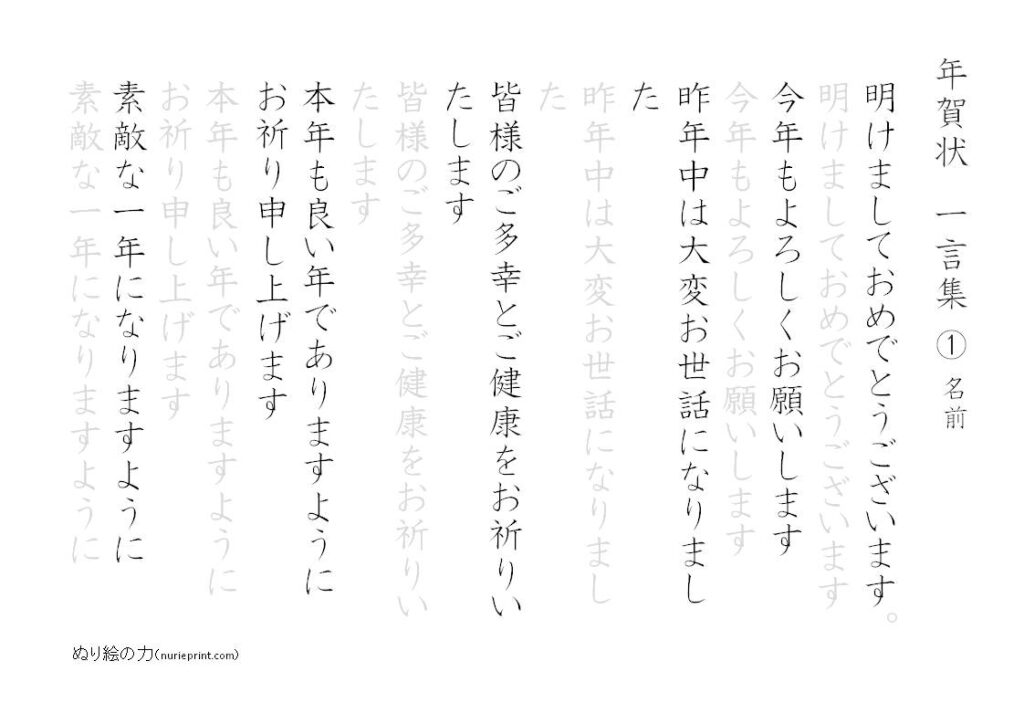 年賀状　一言集①　名前
明けましておめでとうございます。
明けましておめでとうございます
今年もよろしくお願いします
今年もよろしくお願いします
昨年中は大変お世話になりまし
た
昨年中は大変お世話になりまし
た
皆様のご多幸とご健康をお祈りい
たします
皆様のご多幸とご健康をお祈りい
たします
本年も良い年でありますように
お祈り申し上げます
本年も良い年でありますように
お祈り申し上げます
素敵な一年になりますように
素敵な一年になりますように
ぬり絵の力(nurieprint.com)